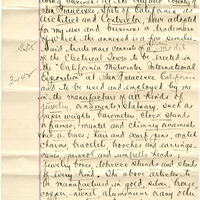 doing business at the
Architect and Contractor, have adopted
for my use and business a trademark
of which the annexed is a fac simile.
Said trademark consists of a model
of the Electrical Tower to be erected in
the "California Midwinter International
Exposition" at San Francisco California
and to be used and employed by me
in the manufacture of all kinds of
jewelry, ornaments & statuary, such as
paper weights, barometer, clock stands
or frames, mantel and chimney ornaments
vase or base; hair and scarf pins, watch
charms, bracelets, brooches and earrings,
canes, parasol and umbrella handles;
jewelry boxes, tobacco stands and stands
of every kind. The above articles to
be manufactured in gold, silver, bronze
copper, nickel, aluminum & any other